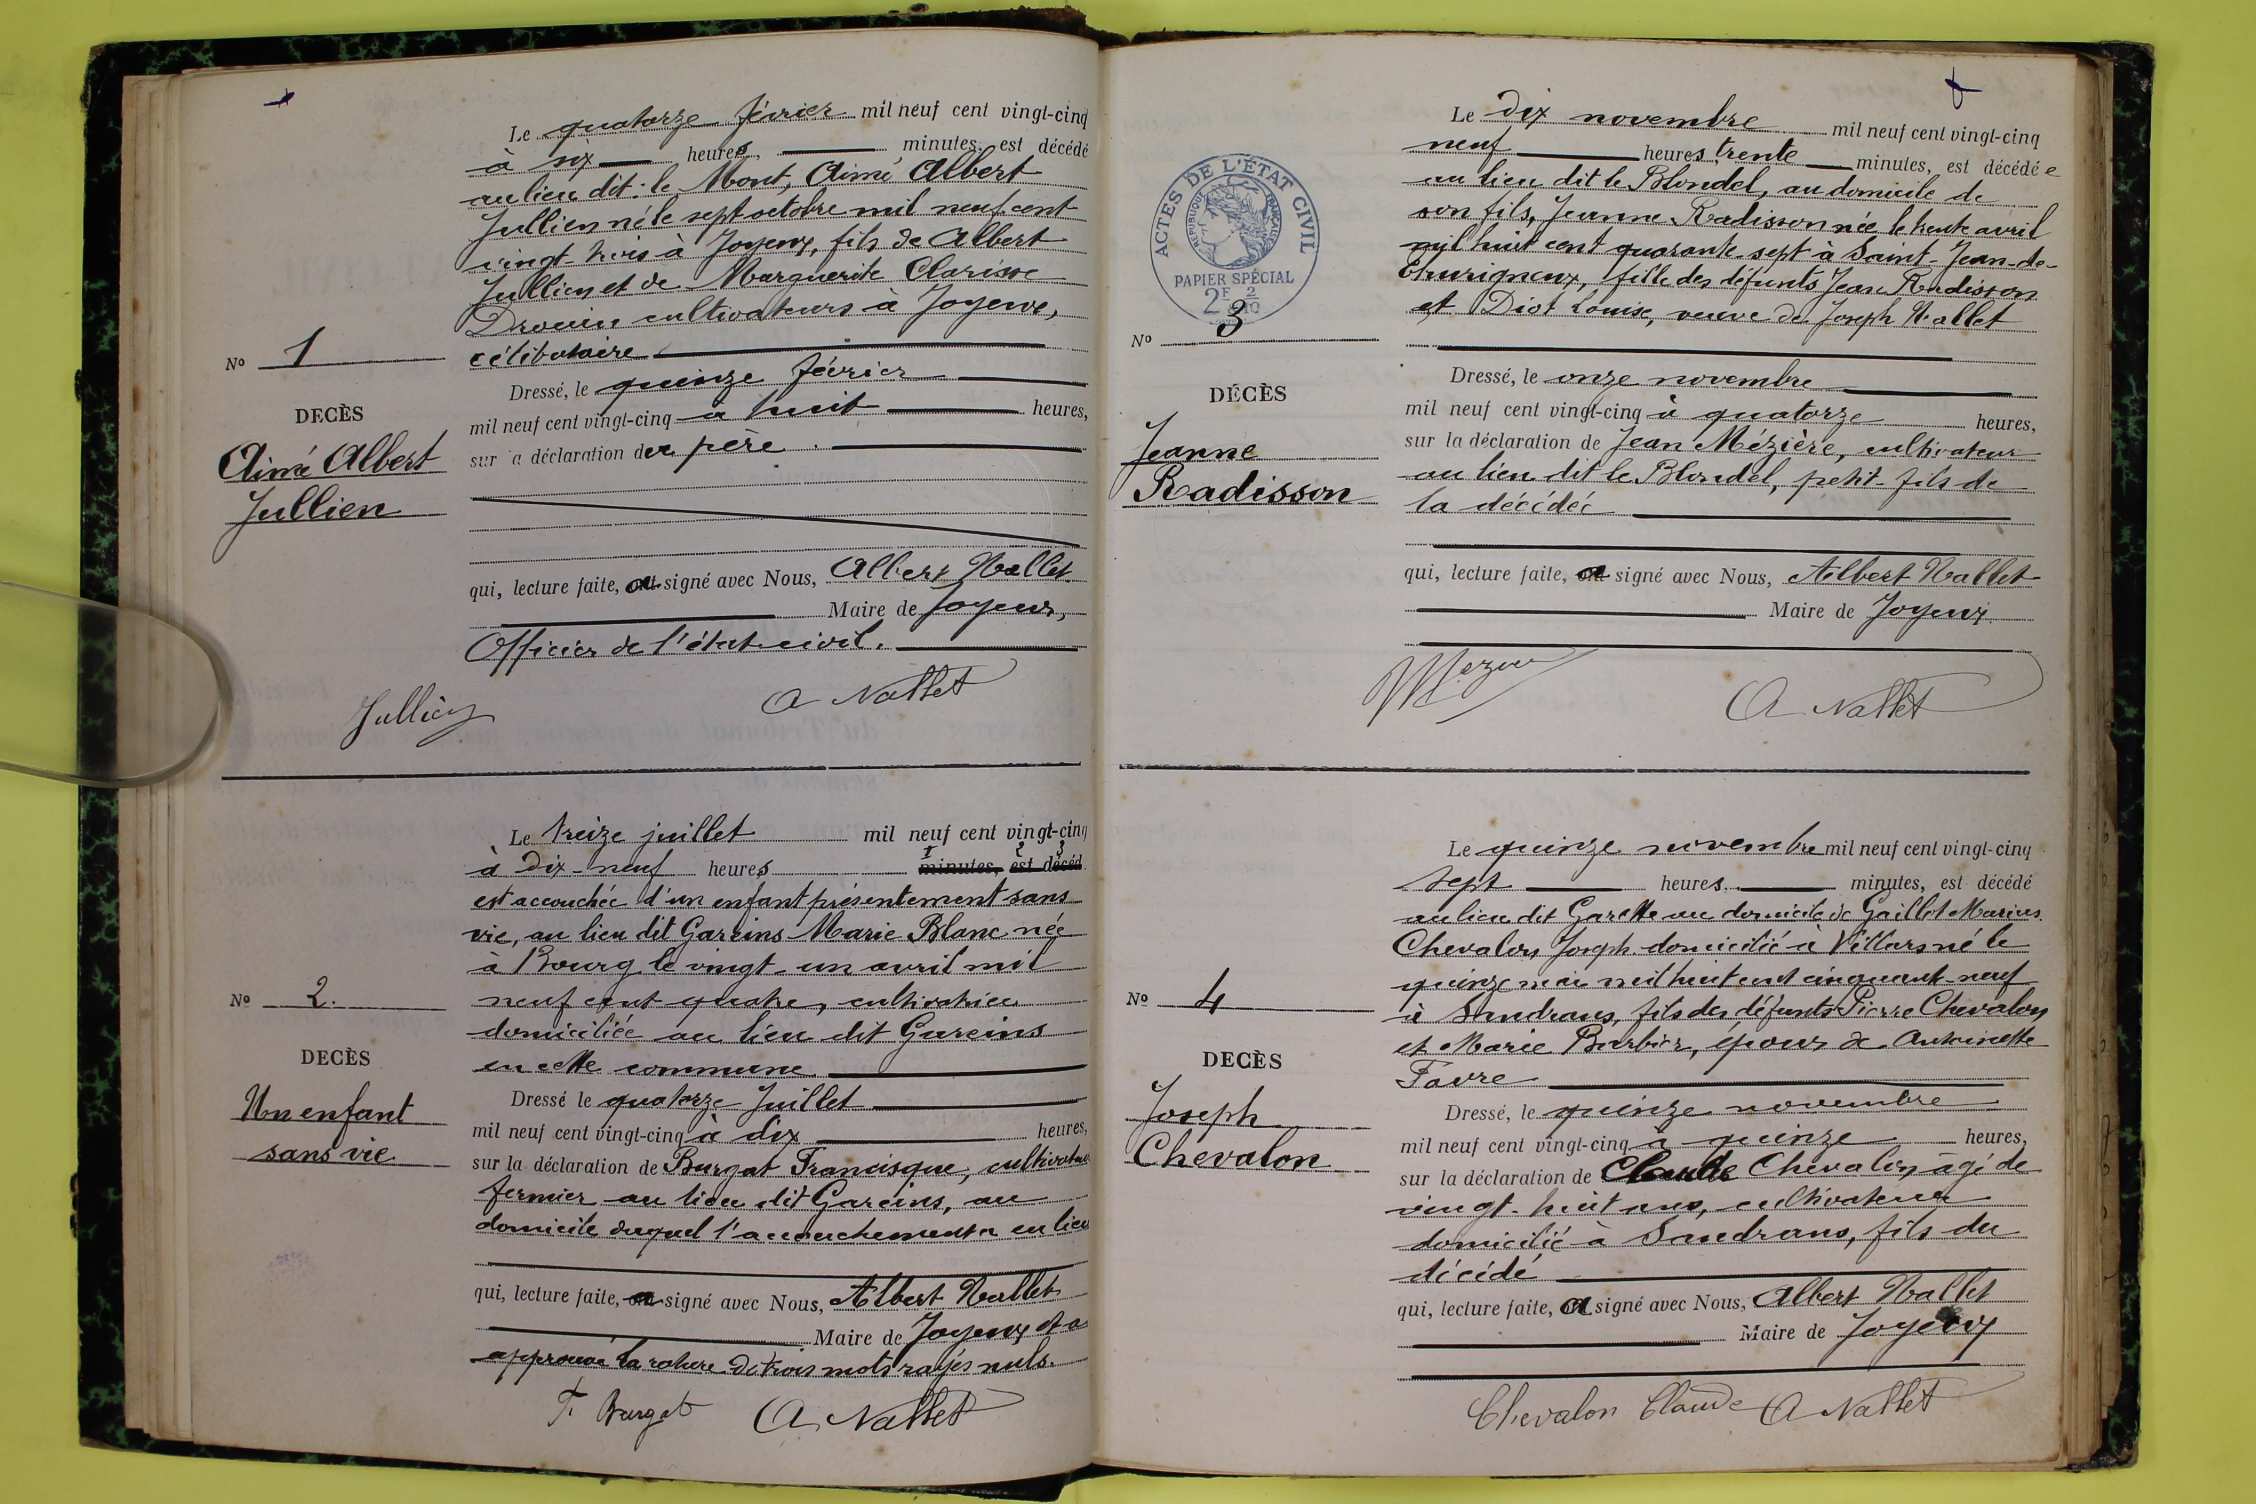 Le quatorze février mil neuf cent vingt-cinq
à six heures, minutes, est décédé
au lieu dit : le Mont, Aimé Albert
Jullien né le sept octobre mil neuf cent
vingt-trois à Joyeux, fils de Albert
Jullien et de Marguerite Clarisse
Drouin cultivateurs à Joyeux,
célibataire
No 1
DECÈS
Aimé Albert
Jullien
Dressé, le quinze février
mil neuf cent vingt-cinq à huit heures,
sur a déclaration du père.
qui, lecture faite, a signé avec Nous, Albert Nallet
Maire de Joyeux,
Officier de l'état-civil.
Jullien A Nallet
Le treize juillet mil neuf cent vingt-cinq
à dix-neuf heures minutes, est décéd
1 2 3
est accouchée d'un enfant présentement sans
vie, au lieu dit Gareins Marie Blanc née
à Bourg le vingt-un avril mil
neuf cent quatre, cultivatrice
domiciliée au lieu dit Gareins
en cette commune
No 2.
DECÈS
Un enfant
sans vie
Dressé le quatorze Juillet
mil neuf cent vingt-cinq à dix heures,
sur la déclaration de Burgat Francisque, cultivateur
fermier au lieu dit Gareins, au
domicile duquel l'accouchement a eu lieu
qui, lecture faite, a signé avec Nous, Albert Nallet
Maire de Joyeux et a
approuvé la rature de trois mots rayés nuls.
F. Burgat A Nallet
ACTES DE L'ÉTAT CIVIL
RÉPUBLIQUE FRANÇAISE
PAPIER SPÉCIAL
2F 2/10
Le dix novembre mil neuf cent vingt-cinq
neuf heures trente minutes, est décédée
au lieu dit le Blondel, au domicile de
son fils, Jeanne Radisson née le trente avril
mil huit cent quarante-sept à Saint-Jean-de-
Thurigneux, fille des défunts Jean Radisson
et Diot Louise, veuve de Joseph Nallet
No 3
DÉCÈS
Jeanne
Radisson
Dressé, le onze novembre
mil neuf cent vingt-cinq à quatorze heures,
sur la déclaration de Jean Mézière, cultivateur
au lieu dit le Blondel, petit-fils de
la décédée
qui, lecture faite, a signé avec Nous, Albert Nallet
Maire de Joyeux
A Nallet
Le quinze novembre mil neuf cent vingt-cinq
sept heures minutes, est décédé
au lieu dit Garette au domicile de Gaillet Marius
Chevalon Joseph domicilié à Villars né le
quinze mai mil huit cent cinquante-neuf
à Sandrans, fils des défunts Pierre Chevalon
et Marie Barbier, époux de Antoinette
Favre
No 4
DECÈS
Joseph
Chevalon
Dressé, le quinze novembre
mil neuf cent vingt-cinq à quinze heures,
sur la déclaration de Claude Chevalon, âgé de
vingt-huit ans, cultivateur
domicilié à Sandrans, fils du
décédé
qui, lecture faite, a signé avec Nous, Albert Nallet
Maire de Joyeux
Chevalon Claude A Nallet